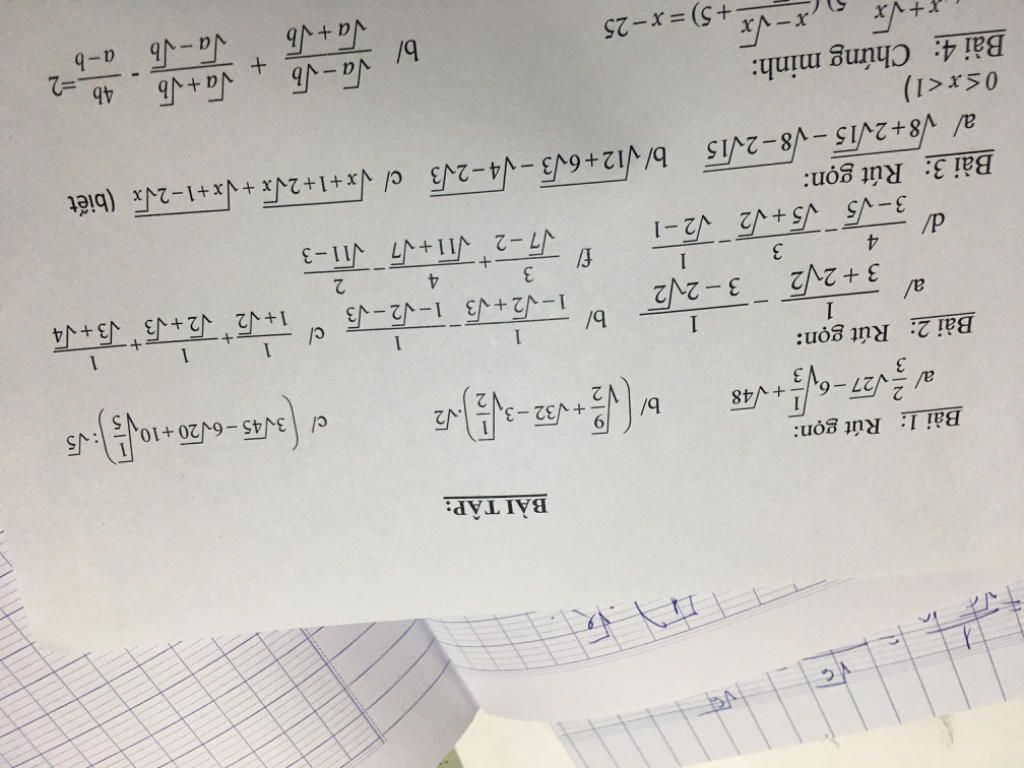 BÀI TẬP:
Bài 1: Rút gọn:
a/ 2/3 √27 − 6√(1/3) + √48 b/ (√(9/2) + √32 − 3√(1/2)).√2 c/ (3√45 − 6√20 + 10√(1/5)) : √5
Bài 2: Rút gọn:
a/ 1/(3 + 2√2) − 1/(3 − 2√2) b/ 1/(1−√2+√3) − 1/(1−√2−√3) c/ 1/(1+√2) + 1/(√2+√3) + 1/(√3+√4)
d/ 4/(3−√5) − 3/(√5+√2) − 1/(√2−1) f/ 3/(√7−2) + 4/(√11+√7) − 2/(√11−3)
Bài 3: Rút gọn:
a/ √(8+2√15) − √(8−2√15) b/ √(12+6√3) − √(4−2√3) c/ √(x+1+2√x) + √(x+1−2√x) (biết
0≤x<1)
Bài 4: Chứng minh:
b/ (√a−√b)/(√a+√b) + (√a+√b)/(√a−√b) - 4b/(a−b) =2
x+√x 5)( x−√x +5) = x−25